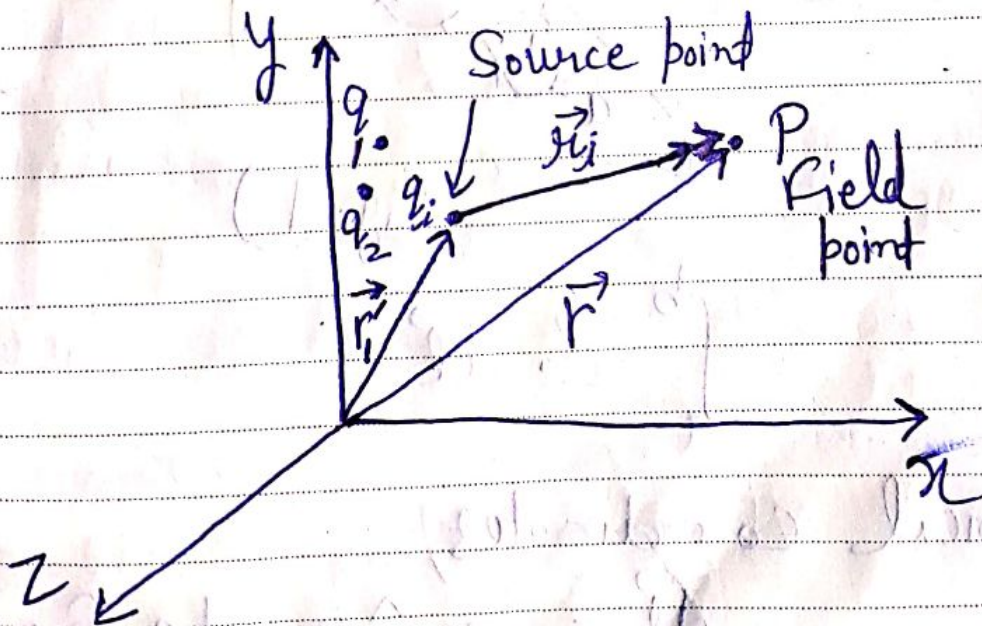 y
Source point
q₁
q₂
qᵢ
𝓇⃗ᵢ
P
Field
point
r⃗₁'
r⃗
x
z